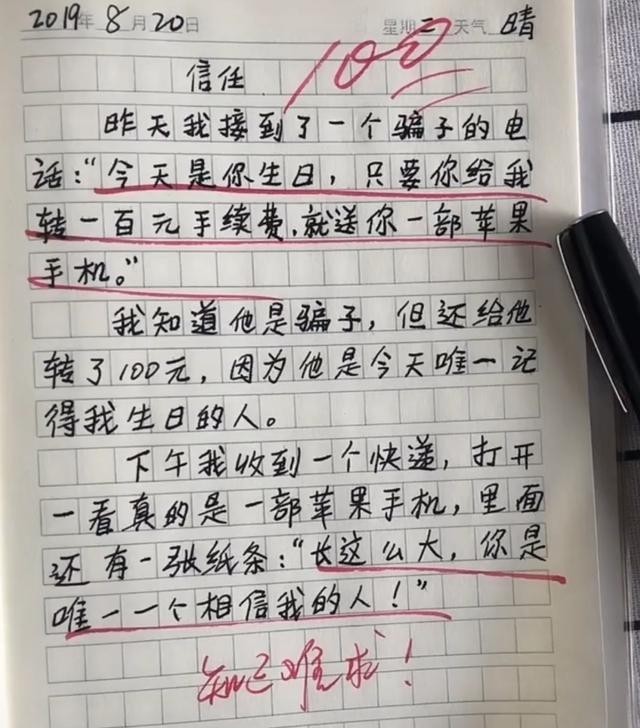 2019年8月20日 星期二 天气 晴
100
信任
昨天我接到了一个骗子的电
话:“今天是你生日,只要你给我
转一百元手续费,就送你一部苹果
手机。”
我知道他是骗子,但还给他
转了100元,因为他是今天唯一记
得我生日的人。
下午我收到一个快递,打开
一看真的是一部苹果手机,里面
还有一张纸条:“长这么大,你是
唯一一个相信我的人!”
知己难求!